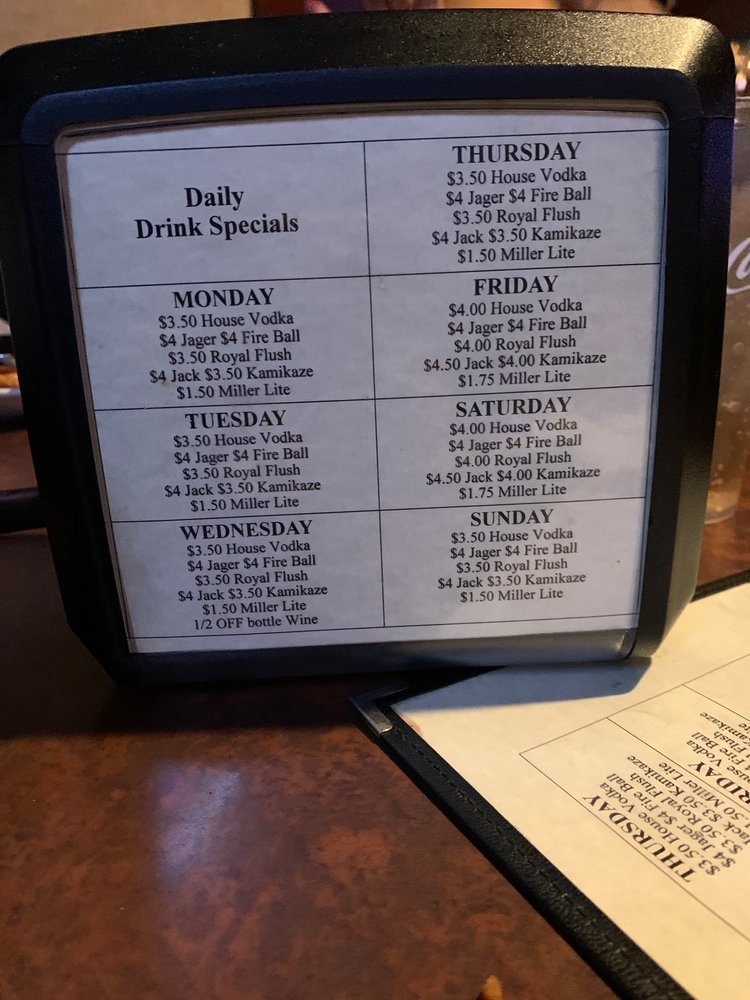 Daily
Drink Specials
MONDAY
$3.50 House Vodka
$4 Jager $4 Fire Ball
$3.50 Royal Flush
$4 Jack $3.50 Kamikaze
$1.50 Miller Lite
TUESDAY
$3.50 House Vodka
$4 Jager $4 Fire Ball
$3.50 Royal Flush
$4 Jack $3.50 Kamikaze
$1.50 Miller Lite
WEDNESDAY
$3.50 House Vodka
$4 Jager $4 Fire Ball
$3.50 Royal Flush
$4 Jack $3.50 Kamikaze
$1.50 Miller Lite
1/2 OFF bottle Wine
THURSDAY
$3.50 House Vodka
$4 Jager $4 Fire Ball
$3.50 Royal Flush
$4 Jack $3.50 Kamikaze
$1.50 Miller Lite
FRIDAY
$4.00 House Vodka
$4 Jager $4 Fire Ball
$4.00 Royal Flush
$4.50 Jack $4.00 Kamikaze
$1.75 Miller Lite
SATURDAY
$4.00 House Vodka
$4 Jager $4 Fire Ball
$4.00 Royal Flush
$4.50 Jack $4.00 Kamikaze
$1.75 Miller Lite
SUNDAY
$3.50 House Vodka
$4 Jager $4 Fire Ball
$3.50 Royal Flush
$4 Jack $3.50 Kamikaze
$1.50 Miller Lite
THURSDAY
$3.50 House Vodka
$4 Jager $4 Fire Ball
$3.50 Royal Flush
Jack $3.50 Kamikaze
.50 Miller Lite
RIDAY
se Vodka
Fire Ball
Flush
Kamikaze